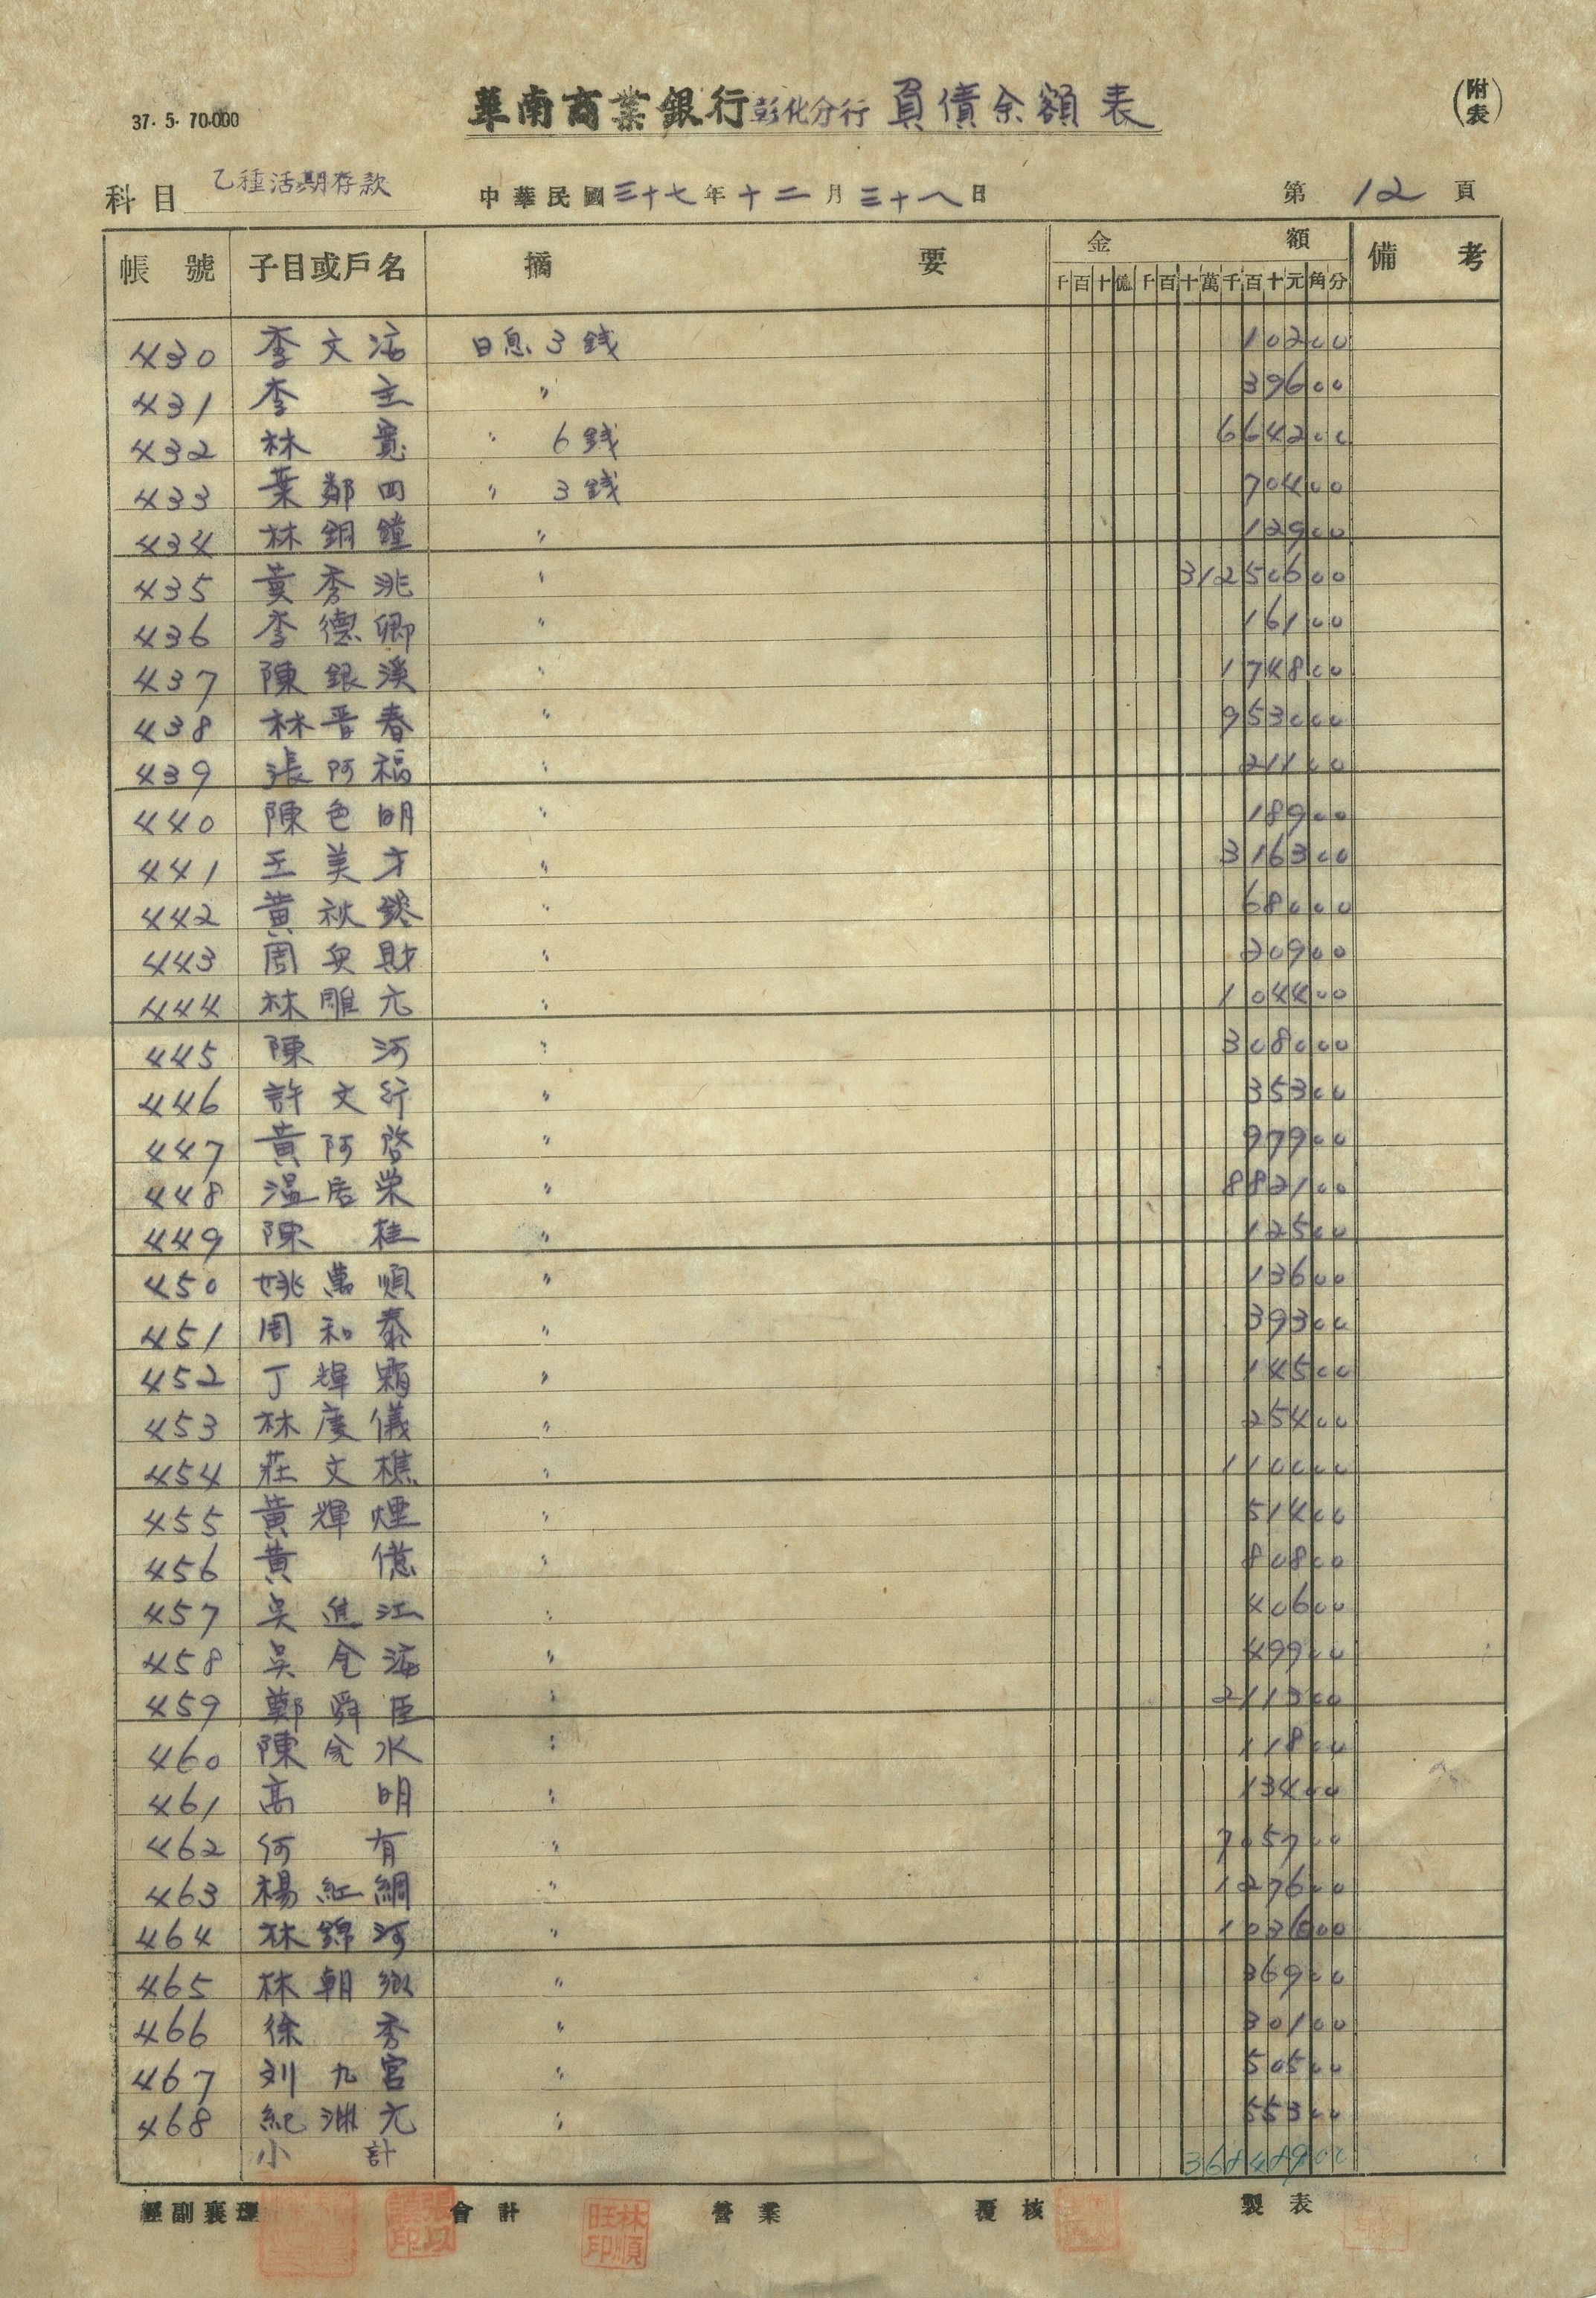 37. 5. 70.000
華南商業銀行彰化分行 負債余額表
(附表)
科目 乙種活期存款 中華民國三十七年十二月三十八日 第12頁
帳號 子目或戶名 摘要 金額 備考
千百十億千百十萬千百十元角分
430 李文 日息3錢 10200
431 李 〃 39600
432 林寬 〃 6錢 664200
433 葉鄰四 〃 3錢 70400
434 林銅鐘 〃 12900
435 黃秀洮 〃 31250600
436 李德卿 〃 16100
437 陳銀溪 〃 174800
438 林晋春 〃 953000
439 張阿福 〃 21100
440 陳色明 〃 18900
441 王美才 〃 316300
442 黃秋 〃 68000
443 周 財 〃 20900
444 林雕元 〃 104400
445 陳河 〃 308000
446 許文行 〃 35300
447 黃阿啓 〃 97900
448 温居栄 〃 882100
449 陳桂 〃 12500
450 姚萬順 〃 13600
451 周和泰 〃 39300
452 丁輝 〃 14500
453 林慶儀 〃 25400
454 莊文樵 〃 110000
455 黃輝煙 〃 51400
456 黃億 〃 80800
457 吳進江 〃 40600
458 吳金海 〃 49900
459 鄭舜臣 〃 211300
460 陳金水 〃 11800
461 高明 〃 13400
462 何有 〃 705700
463 楊紅綢 〃 127600
464 林錦河 〃 103600
465 林朝 〃 36900
466 徐秀 〃 30100
467 刘九宮 〃 50500
468 紀淵元 〃 55300
小計 36848900
經副襄理 會計 營業 覆核 製表
林順旺印